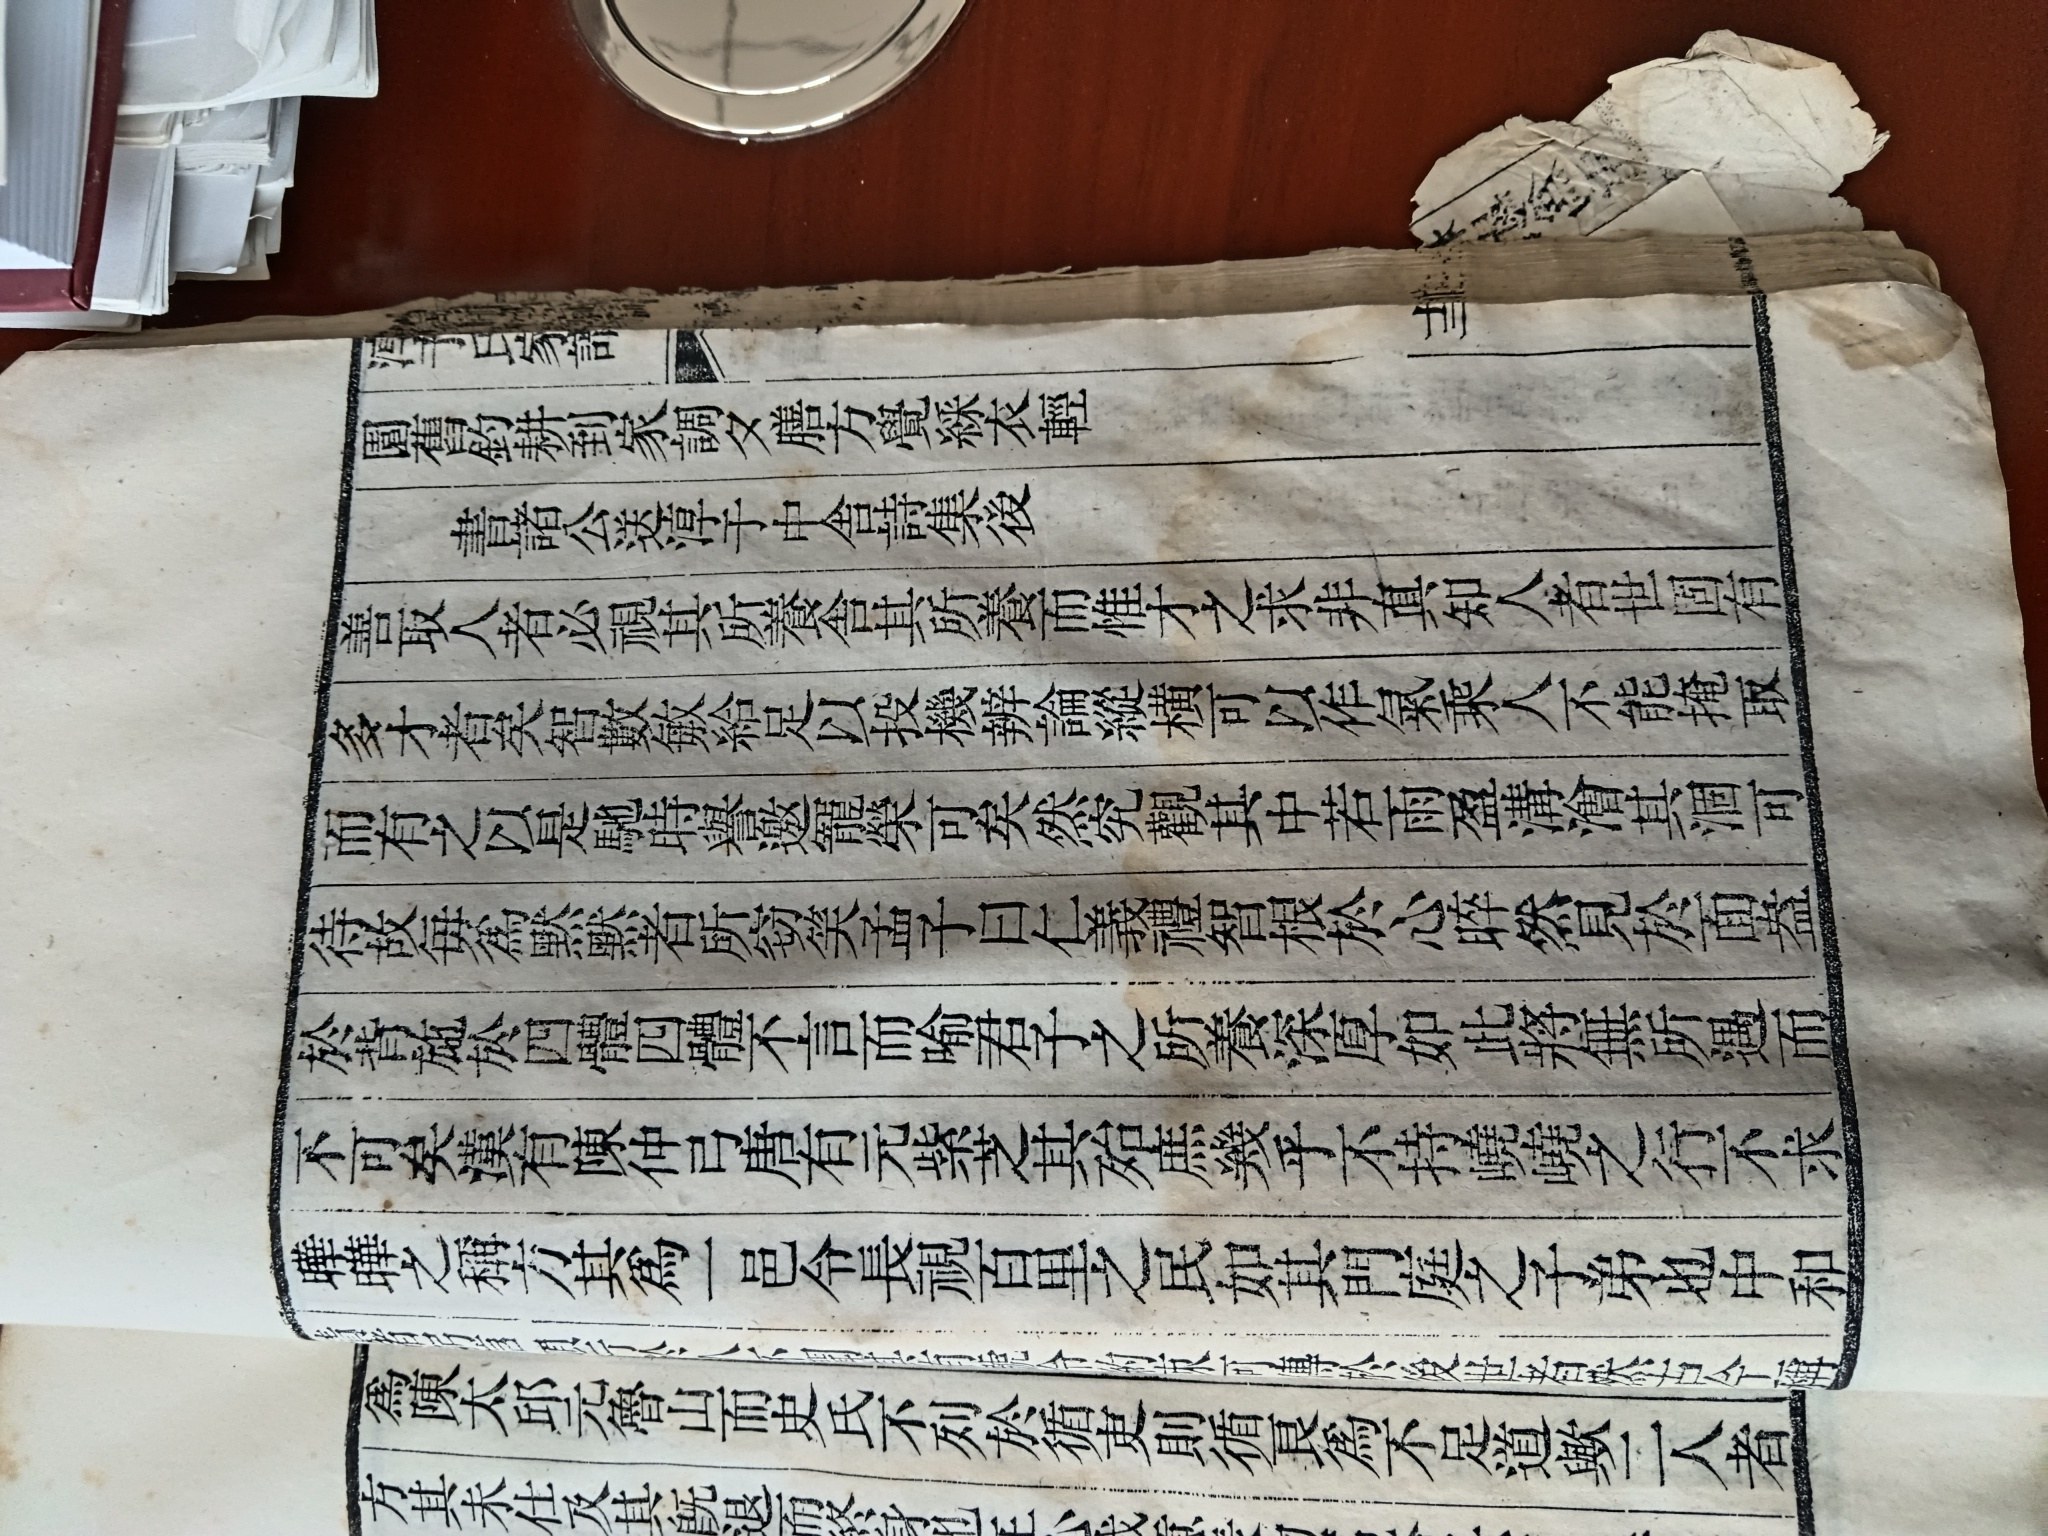 淳于氏家譜
士三
園舊釣耕到家調夕膳方覺綵衣輕
書諸公送淳于中舍詩集後
善取人者必視其所養舍其所養而惟才之求非真知人者世固有
多才者矣智數敏給足以投機辨論縱橫可以作氣乘人不能掩取
而有之以是馳時譽邀寵榮可矣然究觀其中若雨盈溝澮其涸可
待故每為默默者所竊笑孟子曰仁義禮智根於心睟然見於面盎
於背施於四體四體不言而喻君子之所養深厚如此將無所遇而
不可矣漢有陳仲弓唐有元紫芝其殆庶幾乎不持嶢嶢之行不求
曄曄之稱方其為一邑令長視百里之民如其門庭之子弟也中和
為陳太邱元魯山而史氏不列於循吏則循良為不足道歟二人者
方其未仕及其既退而終身也